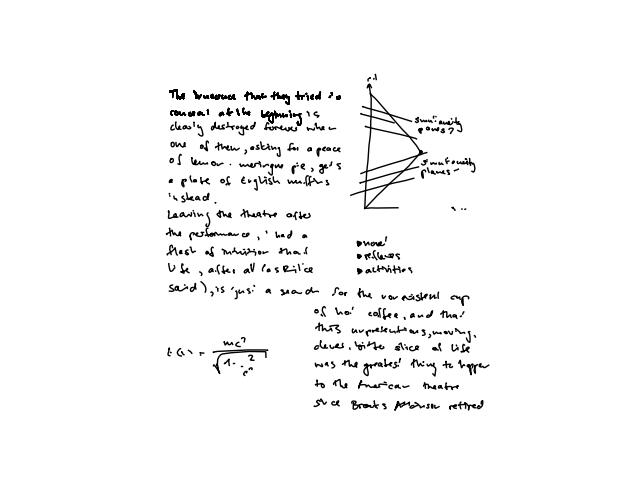 The innocence that they tried to
conceal at the beginning is
clearly destroyed forever when
one of them, asking for a peace
of lemon-meringue pie, gets
a plate of English muffins
instead.
Leaving the theatre after
the performance, I had a
flash of intuition that
life, after all (as Rilke
said), is just a search for the nonexistent cup
of hot coffee, and that
this unpretentious, moving,
clever, bitter slice of life
was the greatest thing to happen
to the American theatre
since Brooks Atkinson retired
simultaneity
planes
simultaneity
planes
novel
reflexes
activities
mc²